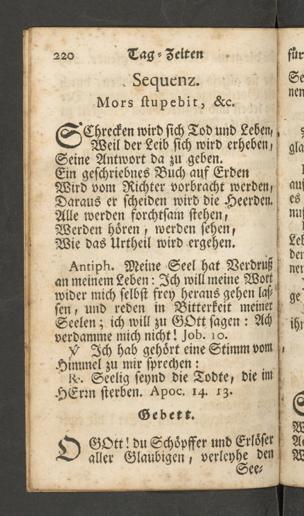 220 Tag-Zeiten
Sequenz.
Mors stupebit, &c.
SChrecken wird sich Tod und Leben,
Weil der Leib sich wird erheben,
Seine Antwort da zu geben.
Ein geschriebnes Buch auf Erden
Wird vom Richter vorbracht werden,
Daraus er scheiden wird die Heerden.
Alle werden forchtsam stehen,
Werden hören, werden sehen,
Wie das Urtheil wird ergehen.
Antiph. Meine Seel hat Verdruß
an meinem Leben: Ich will meine Wort
wider mich selbst frey heraus gehen las-
sen, und reden in Bitterkeit meiner
Seelen; ich will zu GOtt sagen: Ach
verdamme mich nicht! Job. 10.
℣ Ich hab gehört eine Stimm vom
Himmel zu mir sprechen:
℟. Seelig seynd die Todte, die im
HErrn sterben. Apoc. 14. 13.
Gebett.
O GOtt! du Schöpffer und Erlöser
aller Glaubigen, verleyhe den
See-